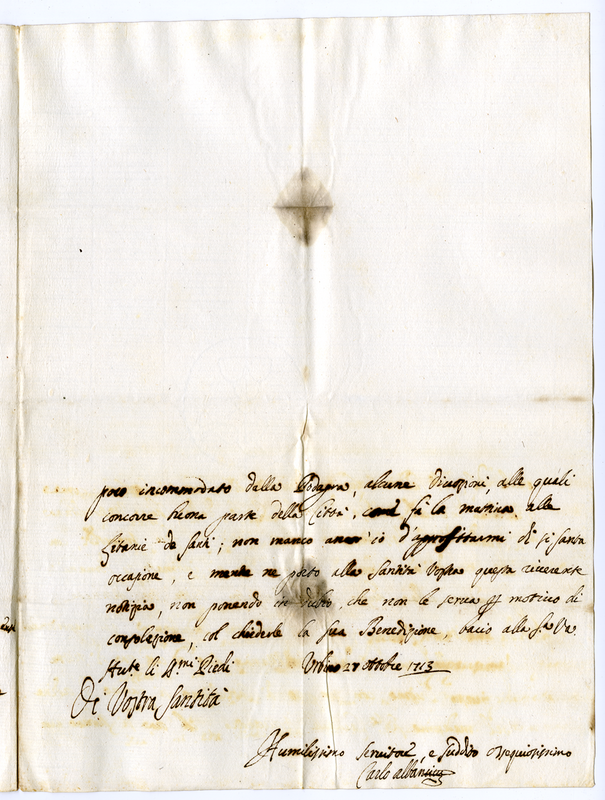 poco incommodato dalla Podagra, alcune divozioni, alle quali
concorre buona parte della Città, come fà la mattina alle
Litanie de Santi; non manco ancor io d'approfittarmi di sì santa
occasione, e mentre ne porto alla Santità Vostra questa riverente
notizia, non ponendo in dubio, che non le serva di motivo di
consolazione, col chiederle la sua Benedizione, bacio alla S.tà V.ra
li S.mi Piedi Urbino 27 ottobre 1713
Di Vostra Santità
Humilissimo servitore, e suddito ossequiosissimo
Carlo Albani